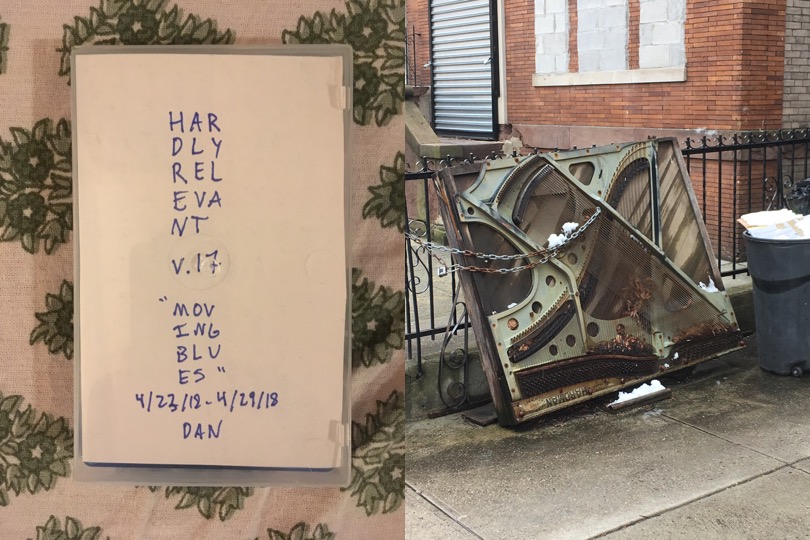 HAR
DLY
REL
EVA
NT
v.17
"MOV
ING
BLU
ES"
4/23/18-4/29/18
DAN